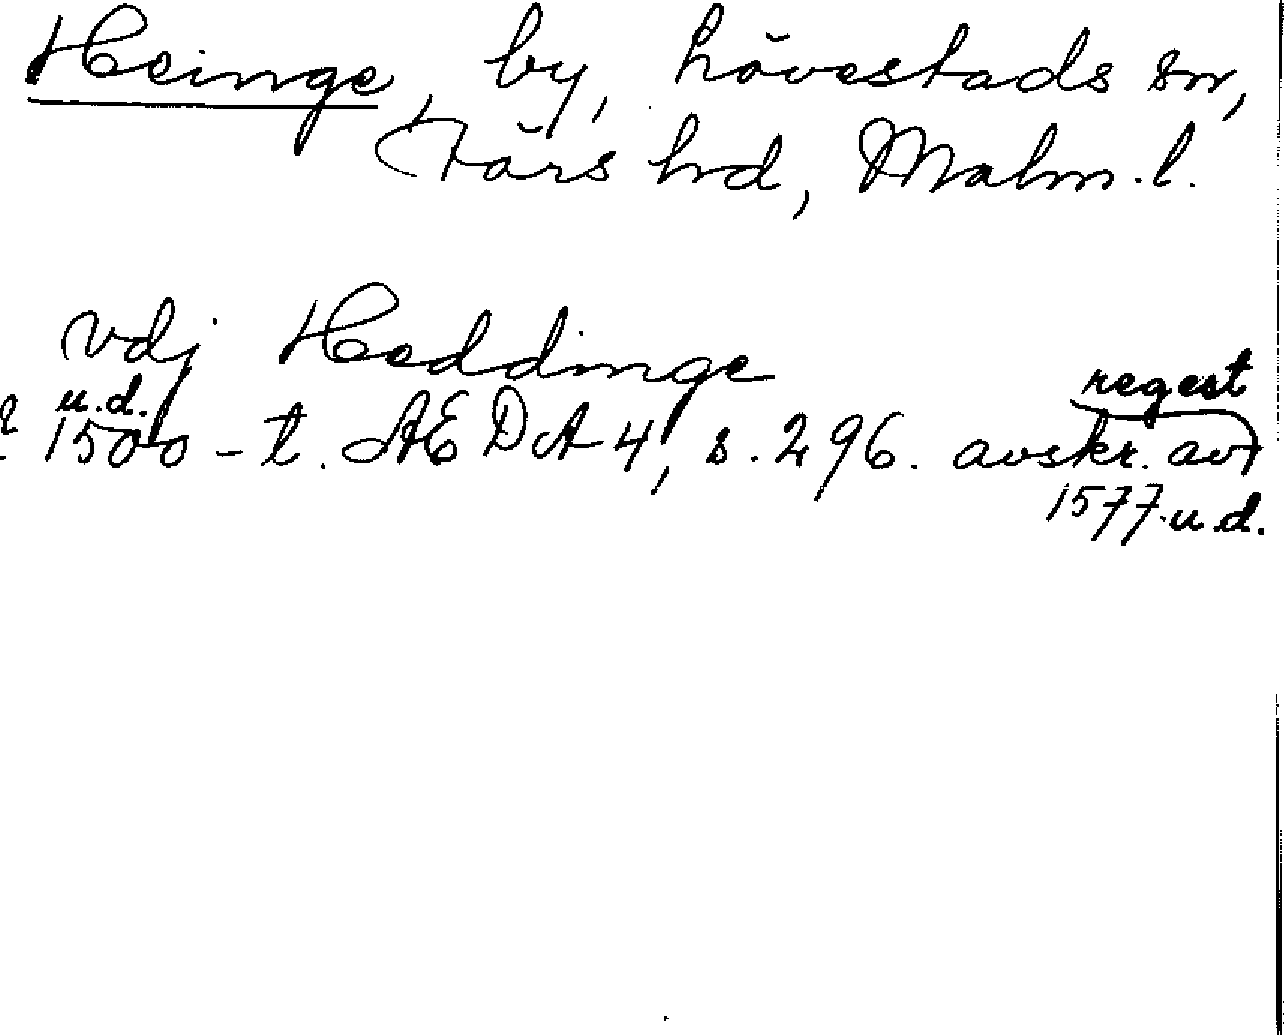 Heinge, by, Lövestads sn,
Färs hd, Malm. l.
vdj Heddinge
regest
u.d.
1500-t. AEDA 4, s. 296. avskr. av
1577 u.d.